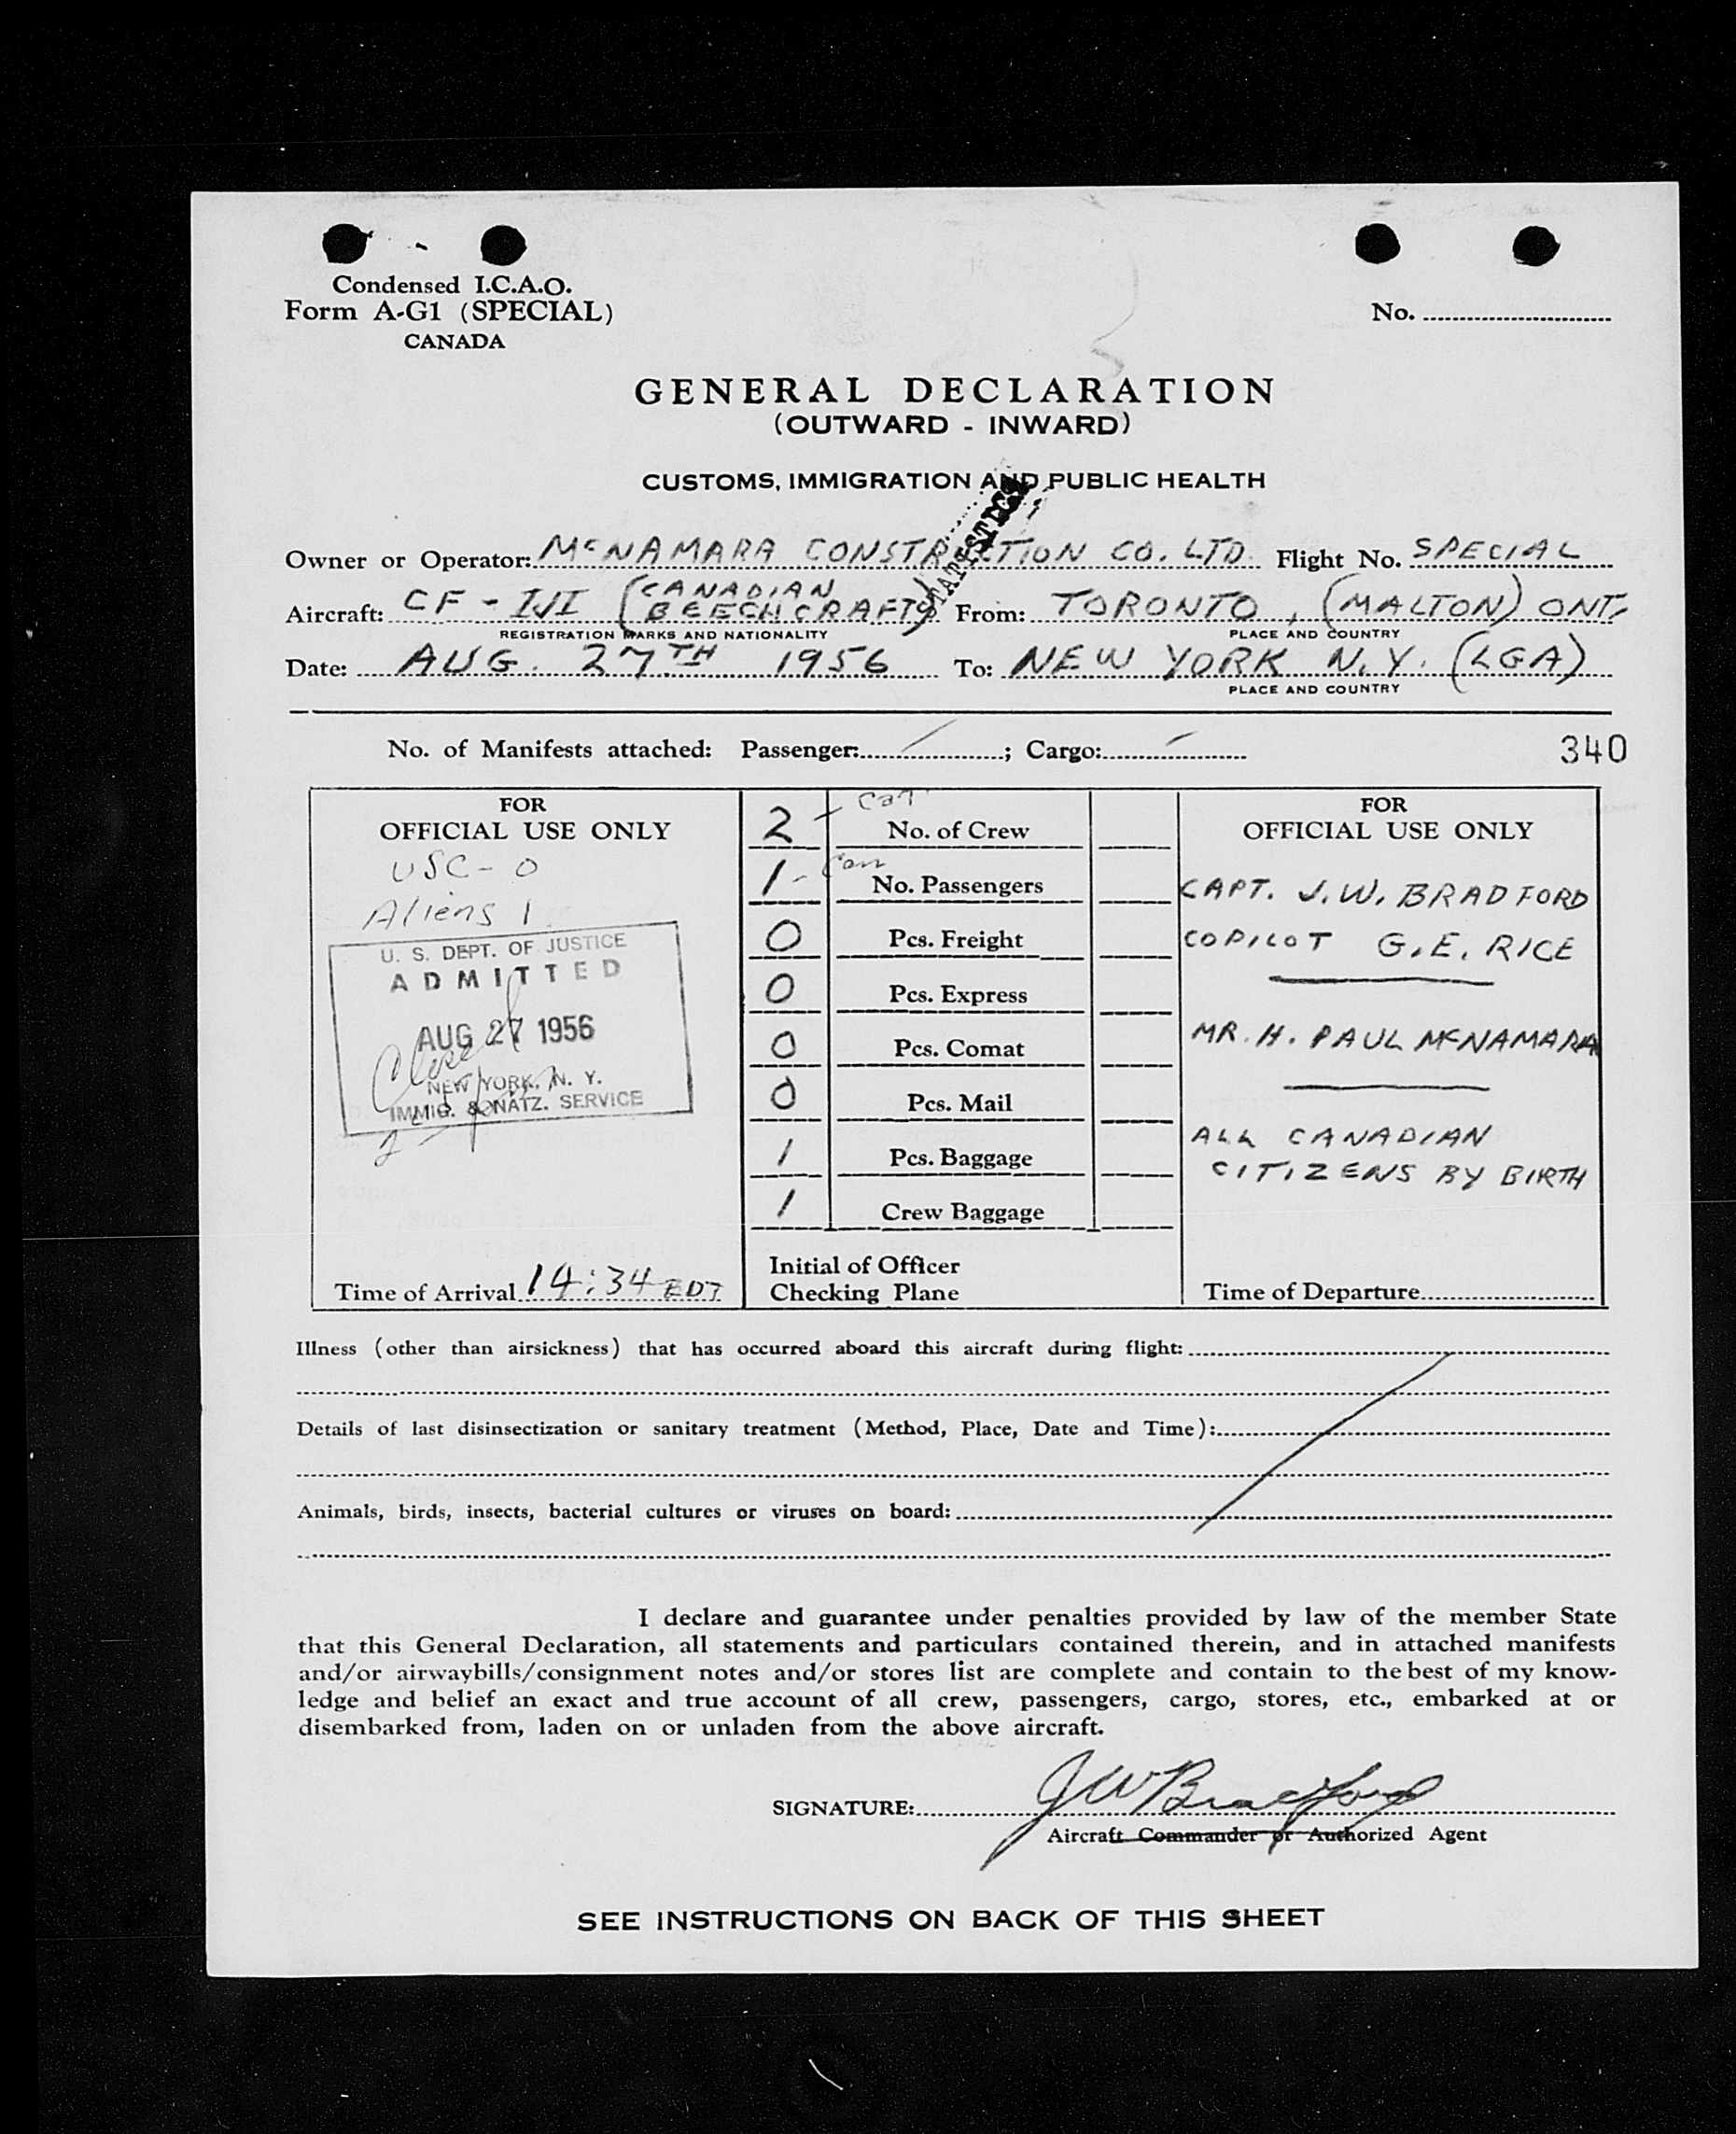 Condensed I.C.A.O.
Form A-G1 (SPECIAL)
CANADA
No.
GENERAL DECLARATION
(OUTWARD - INWARD)
CUSTOMS, IMMIGRATION AND PUBLIC HEALTH
STATISTICS
Owner or Operator: McNAMARA CONSTRUCTION CO. LTD. Flight No. SPECIAL
Aircraft: CF - IJI (CANADIAN BEECHCRAFT) From: TORONTO, (MALTON) ONT.
REGISTRATION MARKS AND NATIONALITY PLACE AND COUNTRY
Date: AUG. 27TH 1956 To: NEW YORK N.Y. (LGA)
PLACE AND COUNTRY
No. of Manifests attached: Passenger: ; Cargo:
340
FOR
OFFICIAL USE ONLY
USC - 0
Aliens 1
U. S. DEPT. OF JUSTICE
ADMITTED
AUG 27 1956
NEW YORK, N. Y.
IMMIG. & NATZ. SERVICE
Time of Arrival 14:34 EDT
2 - No. of Crew
1 - Can No. Passengers
0 Pcs. Freight
0 Pcs. Express
0 Pcs. Comat
0 Pcs. Mail
1 Pcs. Baggage
1 Crew Baggage
Initial of Officer
Checking Plane
FOR
OFFICIAL USE ONLY
CAPT. J.W. BRADFORD
COPILOT G.E. RICE
MR. H. PAUL McNAMARA
ALL CANADIAN
CITIZENS BY BIRTH
Time of Departure
Illness (other than airsickness) that has occurred aboard this aircraft during flight:
Details of last disinsectization or sanitary treatment (Method, Place, Date and Time):
Animals, birds, insects, bacterial cultures or viruses on board:
I declare and guarantee under penalties provided by law of the member State
that this General Declaration, all statements and particulars contained therein, and in attached manifests
and/or airwaybills/consignment notes and/or stores list are complete and contain to the best of my know-
ledge and belief an exact and true account of all crew, passengers, cargo, stores, etc., embarked at or
disembarked from, laden on or unladen from the above aircraft.
SIGNATURE: JW Bradford
Aircraft Commander or Authorized Agent
SEE INSTRUCTIONS ON BACK OF THIS SHEET